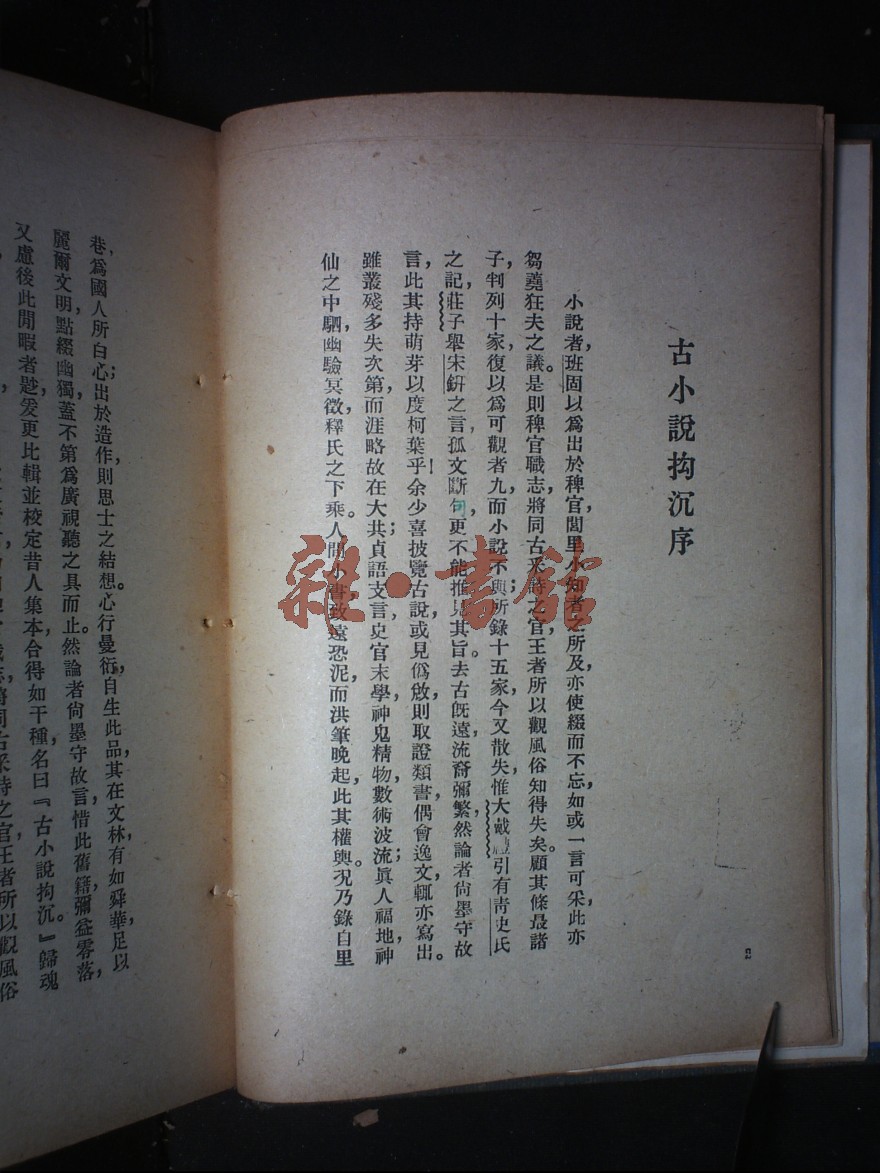 古小說拘沉序
小說者，班固以爲出於稗官，閭里小知者之所及，亦使綴而不忘，如或一言可采，此亦
芻蕘狂夫之議。是則稗官職志，將同古采詩之官，王者所以觀風俗知得失矣。顧其條最諸
子，判列十家，復以爲可觀者九，而小說不與；所錄十五家，今又散失。惟大戴引有靑史氏
之記，莊子舉宋鈃之言，孤文斷句，更不能推見其旨。去古旣遠，流裔彌繁，然論者尙墨守故
言，此其持萌芽以度柯葉乎！余少喜披覽古說，或見僞敓，則取證類書，偶會逸文，輒亦寫出。
雖叢殘多失次第，而涯略故在。大共貞語支言，史官末學，神鬼精物，數術波流；眞人福地，神
仙之中駟，幽驗冥徵，釋氏之下乘。人間小書，致遠恐泥，而洪筆晚起，此其權輿。況乃錄自里
巷，爲國人所白心；出於造作，則思士之結想。心行曼衍，自生此品，其在文林，有如舜華，足以
麗爾文明，點綴幽獨，蓋不第爲廣視聽之具而止。然論者尙墨守故言。惜此舊籍，彌益零落，
又慮後此閒暇者尟，爰更比輯，並校定昔人集本，合得如干種，名曰『古小說拘沉。』歸魂
將同古采詩之官，王者所以觀風俗
雜·書館